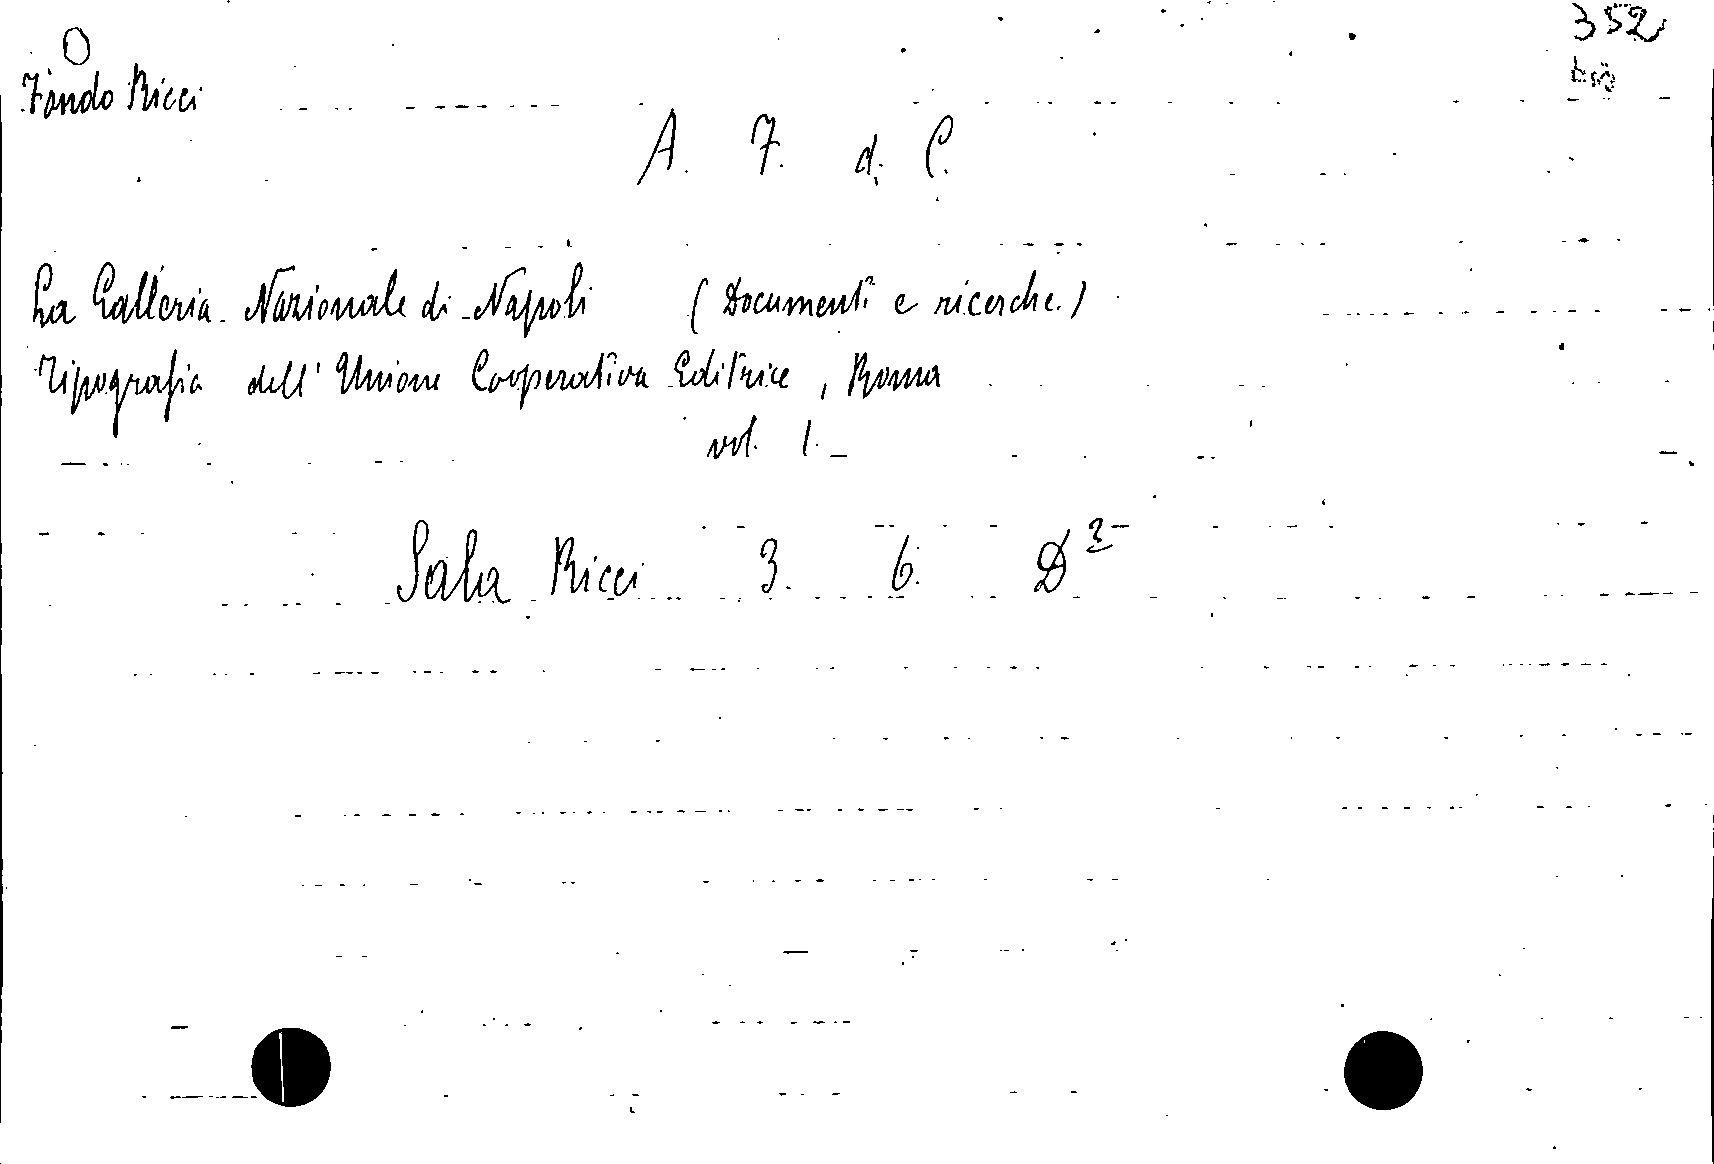 O
352
bis
Fondo Ricci
A. F. d. C.
La Galleria Nazionale di Napoli (Documenti e ricerche.)
Tipografia dell' Unione Cooperativa Editrice, Roma
vol. 1.
Sala Ricci 3. 6. D 2